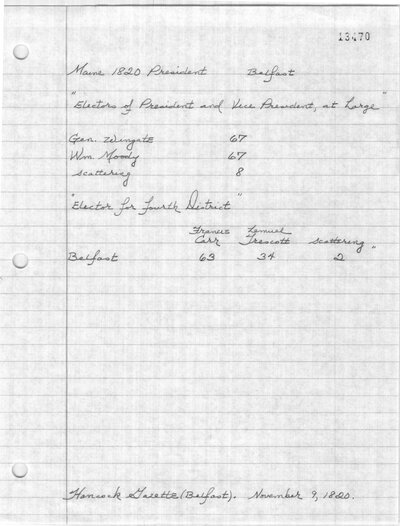 13470
Maine 1820 President Belfast
"Electors of President and Vice President, at Large"
Gen. Wingate 67
Wm. Moody 67
scattering 8
"Elector for Fourth District"
Francis Carr Lemuel Trescott scattering"
Belfast 63 34 2
Hancock Gazette (Belfast). November 9, 1820.